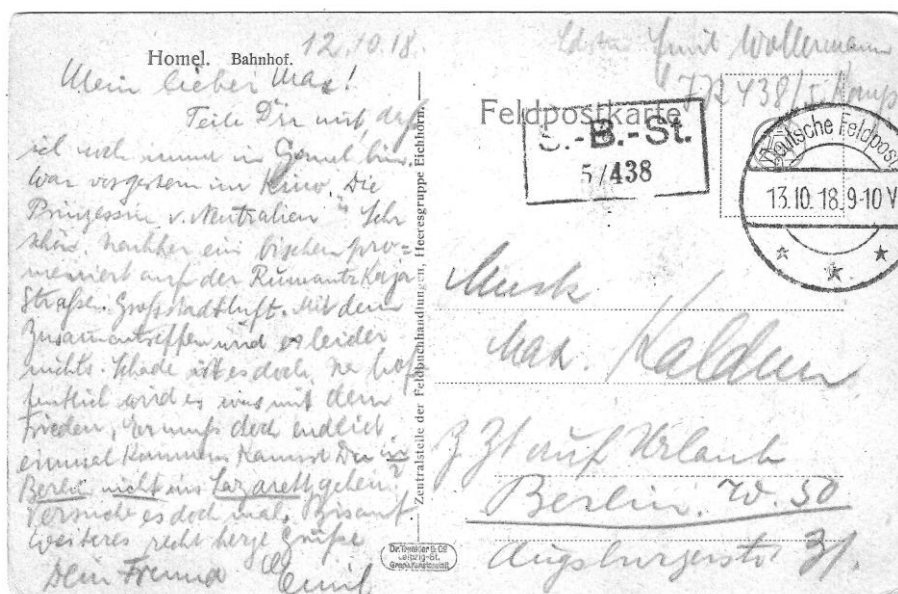 Homel. Bahnhof.
12.10.18.
Mein lieber Max!
Teile Dir mit, daß
ich noch immer in Gomel bin.
War vorgestern im Kino. Die
Prinzessin v. Neutralien". Sehr
schön. Nachher ein bischen pro-
meniert auf der Rumantzkaja
Straße. Großstadtluft. Mit dem
Zusammentreffen wird es leider
nichts. Schade ist es doch. Na hof
fentlich wird es was mit dem
Frieden. Er muß doch endlich
einmal kommen. Kannst Du in
Berlin nicht ins Lazarett gehen?
Versuche es doch mal. Bis auf
weiteres recht herzl. Grüße
Dein Freund Emil
Zentralstelle der Feldbuchhandlungen, Heeresgruppe Eichhorn.
Dr. Trenkler & Co
Leipzig-St.
Emil Wollermann
438/5. Komp
Feldpostkarte
S.-B.-St.
5/438
Deutsche Feldpost
13.10.18. 9-10 V
Musk
Max. Kaldun
z. Zt auf Urlaub
Berlin. W. 50
Augsburgerstr 31.